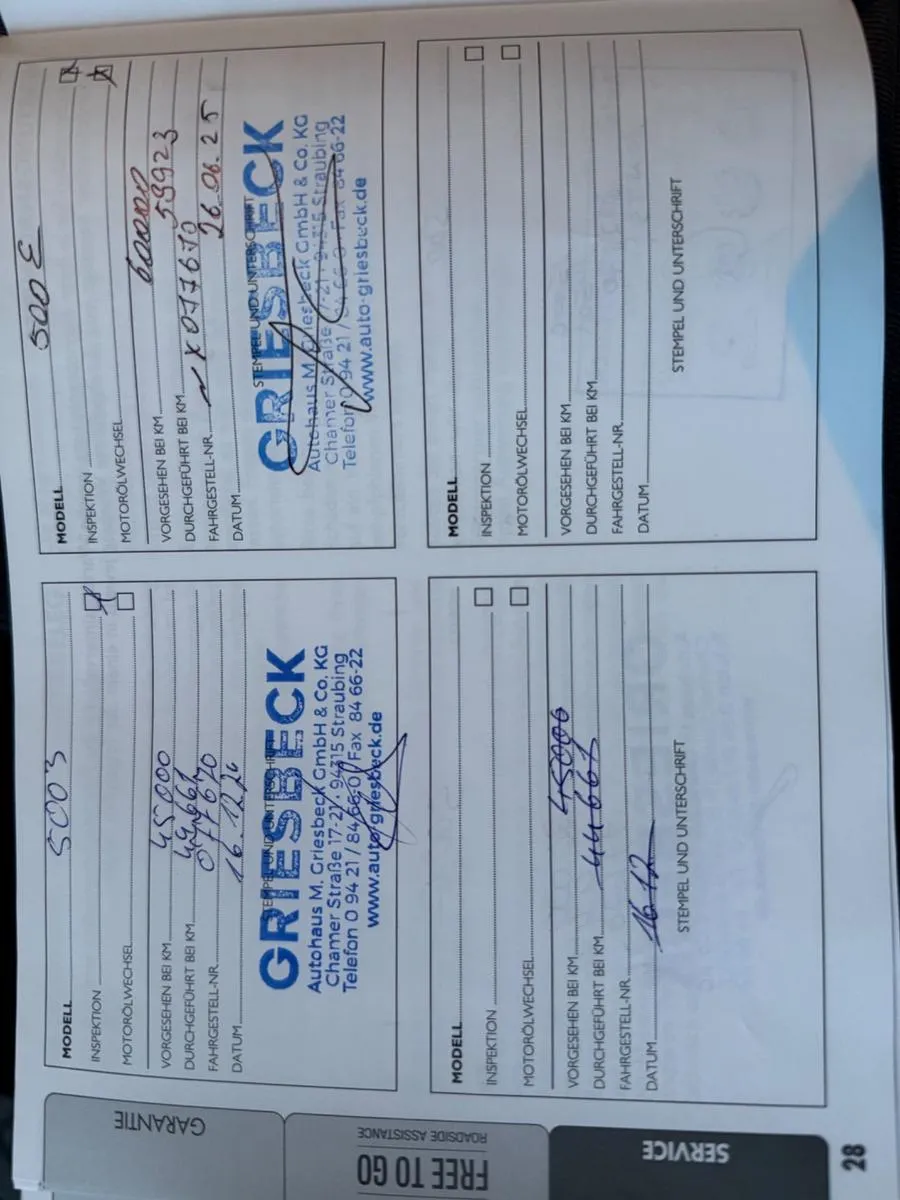 MODELL 5003
INSPEKTION
MOTORÖLWECHSEL
VORGESEHEN BEI KM 45000
DURCHGEFÜHRT BEI KM 44661
FAHRGESTELL-NR. 077670
DATUM 16.12.24
STEMPEL UND UNTERSCHRIFT
GRIESBECK
Autohaus M. Griesbeck GmbH & Co. KG
Chamer Straße 17-21 · 94315 Straubing
Telefon 0 94 21 / 84 66-0 / Fax 84 66-22
www.auto-griesbeck.de
MODELL 500 E
INSPEKTION
MOTORÖLWECHSEL
VORGESEHEN BEI KM 60000
DURCHGEFÜHRT BEI KM 59923
FAHRGESTELL-NR. X077670
DATUM 26.06.25
STEMPEL UND UNTERSCHRIFT
GRIESBECK
Autohaus M. Griesbeck GmbH & Co. KG
Chamer Straße 17-21 · 94315 Straubing
Telefon 0 94 21 / 84 66-0 · Fax 84 66-22
www.auto-griesbeck.de
MODELL
INSPEKTION
MOTORÖLWECHSEL
VORGESEHEN BEI KM 45000
DURCHGEFÜHRT BEI KM 44661
FAHRGESTELL-NR.
DATUM 16.12
STEMPEL UND UNTERSCHRIFT
MODELL
INSPEKTION
MOTORÖLWECHSEL
VORGESEHEN BEI KM
DURCHGEFÜHRT BEI KM
FAHRGESTELL-NR.
DATUM
STEMPEL UND UNTERSCHRIFT
GARANTIE
ROADSIDE ASSISTANCE
FREE TO GO
SERVICE
28